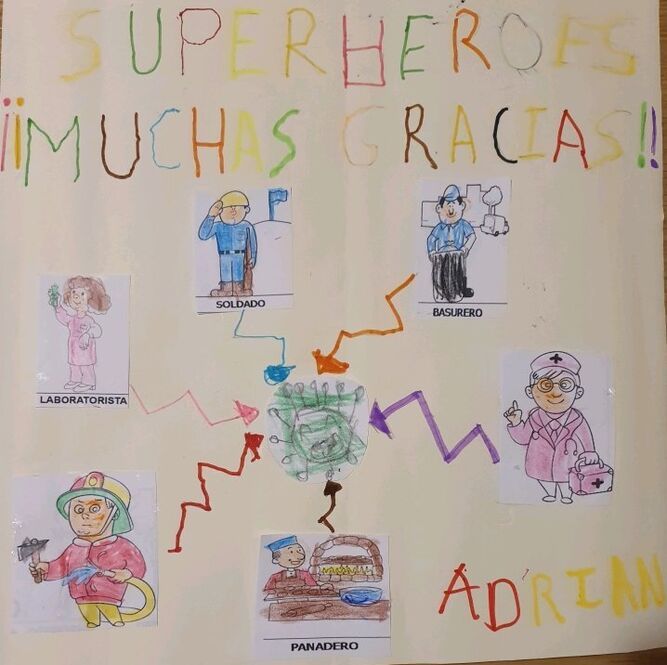 SUPERHEROES
¡¡MUCHAS GRACIAS!!
SOLDADO
BASURERO
LABORATORISTA
PANADERO
ADRIAN